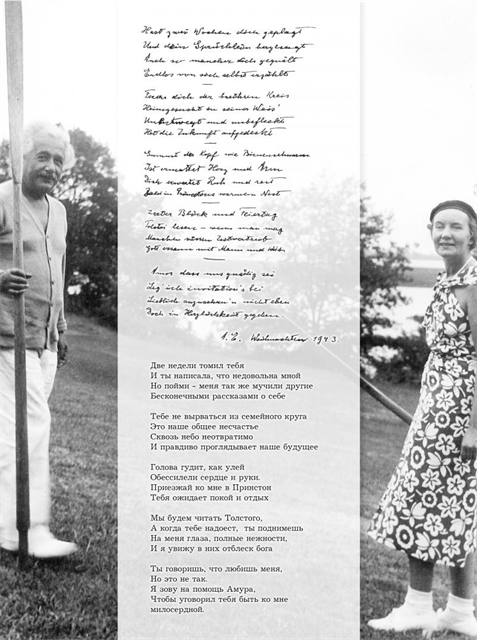 Hast zwei Wochen dich geplagt
Und dein Sprüchlein hergesagt
Auch so mancher dich gequält
Endlos von sich selbst erzählt
dich der Kreis
Heimgesucht in seiner Weis'
und unbefleckt
Hat die Zukunft aufgedeckt
Summt der Kopf wie Bienenschwarm
Ist ermattet Herz und Arm
Dich erwartet Ruh und Rast
Bald in Princetons warmem Nest
Blick und Feiertag
Tolstoi lesen - wenn man mag
Mancher Zeitvertreib
Gott mit Mann und Weib
Amor dass uns gnädig sei
Leg' ich invitation's bei
Lieblich anzuschau'n nicht eben
Doch in gegeben.
A. E. Weihnachten 1943.
Две недели томил тебя
И ты написала, что недовольна мной
Но пойми – меня так же мучили другие
Бесконечными рассказами о себе
Тебе не вырваться из семейного круга
Это наше общее несчастье
Сквозь небо неотвратимо
И правдиво проглядывает наше будущее
Голова гудит, как улей
Обессилели сердце и руки.
Приезжай ко мне в Принстон
Тебя ожидает покой и отдых
Мы будем читать Толстого,
А когда тебе надоест, ты поднимешь
На меня глаза, полные нежности,
И я увижу в них отблеск бога
Ты говоришь, что любишь меня,
Но это не так.
Я зову на помощь Амура,
Чтобы уговорил тебя быть ко мне
милосердной.